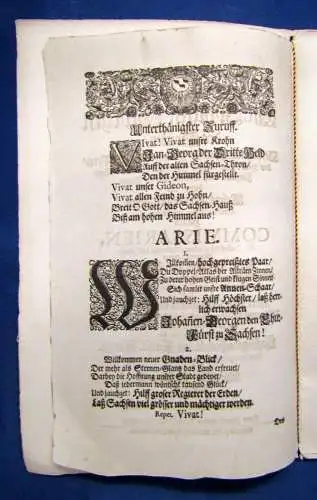 Unterthänigster Zuruff.
Vivat! Vivat unsre Krohn
Jan-Georg der Dritte Held
Auff der alten Sachsen-Thron/
Den der Himmel fürgestellt.
Vivat unser Gideon,
Vivat allen Feind zu Hohn/
Breit O Gott/ das Sachsen-Hauß
Biß am hohen Himmel aus!
ARIE.
1.
Willkollen/ hochgepreißtes Paar/
Du Doppel-Atlas der
Zu derer hohen Geist und klugen Sinnen
Sich samlet unsre Annen-Schaar/
Und jauchzet: Hilff Höchster/ laß herrlich erwachsen
Johañen-Georgen den Chur-
Fürst zu Sachsen!
2.
Willkommen neuer Gnaden-Blick/
Der mehr als Sternen-Glantz das Land erfreuet/
Darbey die Hoffnung unsrer Stadt gedeyet/
Daß jedermann wündscht tausend Glück/
Und jauchzet: Hilff grosser Regierer der Erden/
Laß Sachsen viel grösser und mächtiger werden.
Repet. Vivat!
Des